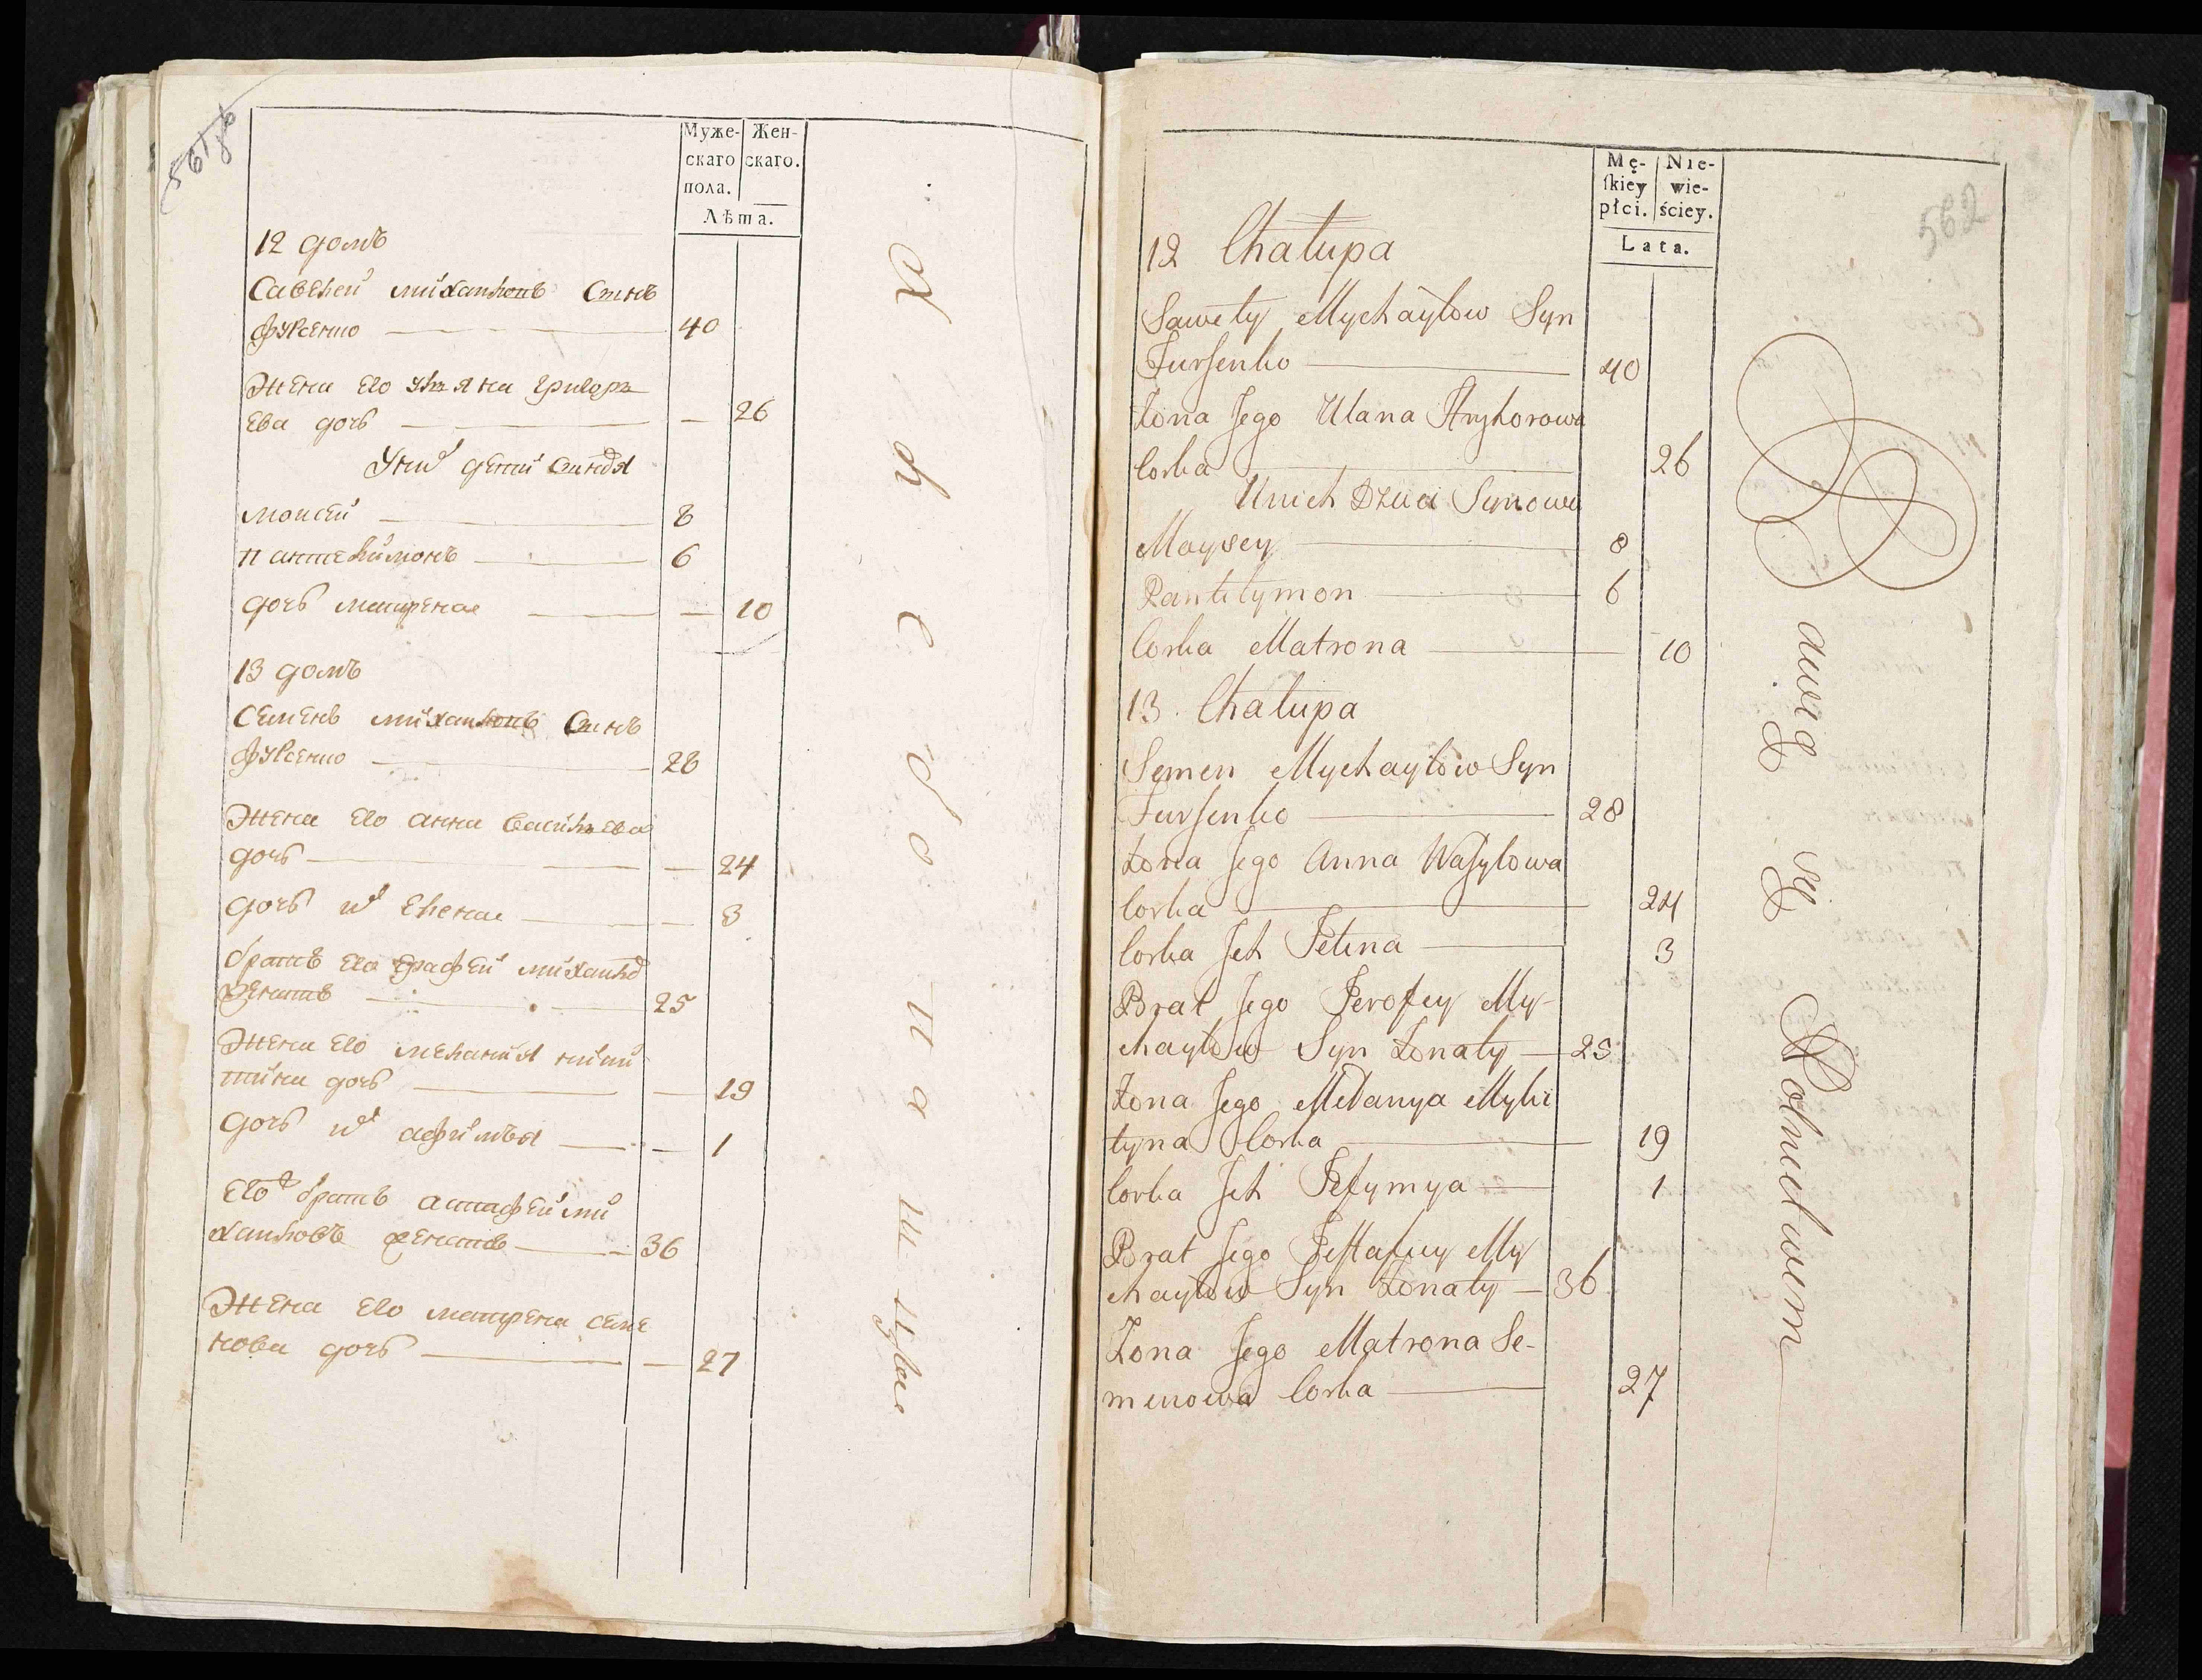 Муже-
скаго
пола.
Жен-
скаго.
Лѣта.
12 домъ
Савелей михайловъ Синъ
фурсенко 40
Жена Его улияна григорі
Ева дочь — 26
У них дети Синовя
моисей 8
пантелимонъ 6
дочь матрена — 10
13 домъ
Семенъ михайловъ Синъ
фурсенко 28
Жена Его анна василиева
дочь — 24
дочь их Елена — 3
братъ Его Ерафей михайло
женатъ 25
Жена Его мелания ники
тина дочь — 19
дочь их афимья — 1
Его братъ астафей ми
хайловъ женатъ 36
Жена Его матрена семе
нова дочь — 27
562
Mę-
ſkiey
płci.
Nie-
wie-
ściey.
Lata.
12 Chałupa
Sawety Mychayłow Syn
Furſenko 40
Zona Jego Ulana Hryhorowa
Corka 26
U nich Dzieci Synowie
Moysey 8
Pantelymon 6
Corka Matrona 10
13. Chałupa
Semen Mychayłow Syn
Furſenko 28
Zona Jego Anna Waſylowa
Corka 24
Corka Jch Jelena 3
Brat Jego Jerofey My-
chayłow Syn Zonaty 25
Zona Jego Mełanya Myki
tyna Corka 19
Corka Jch Jefymya 1
Brat Jego Jeſtafiey My
chayłow Syn Zonaty 36
Zona Jego Matrona Se-
menowa Corka 27